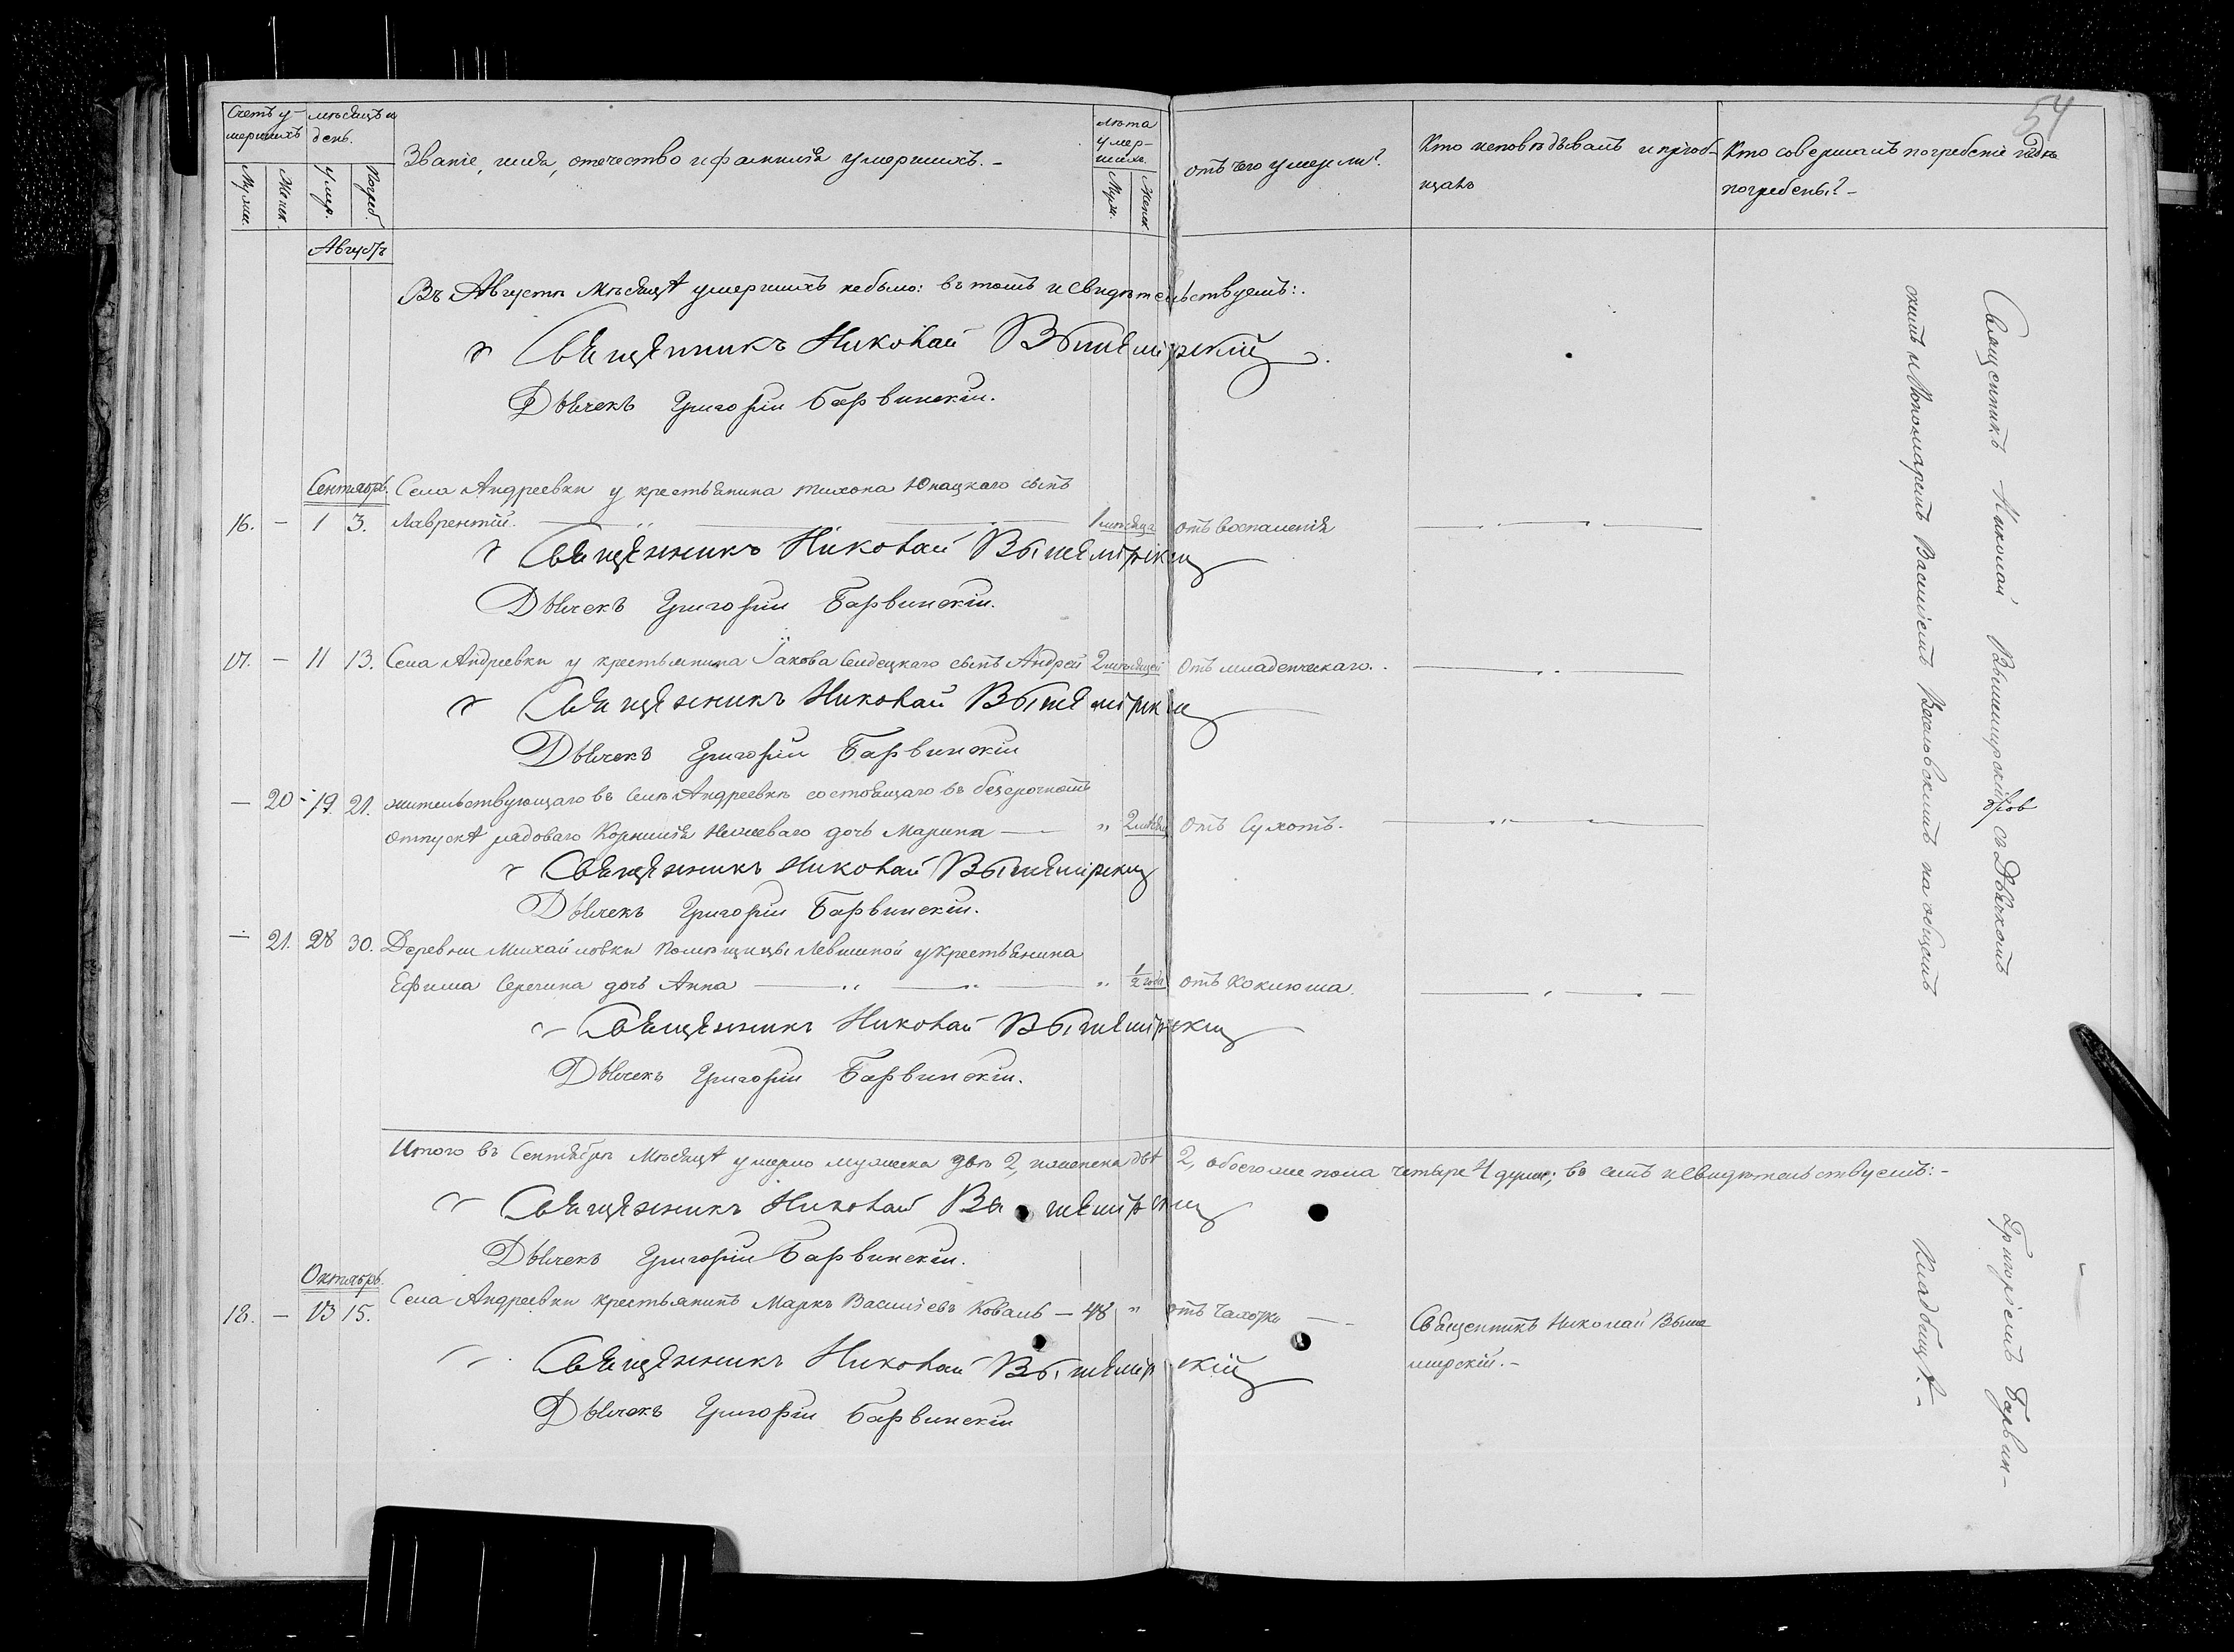 54
Счетъ у-
мершихъ
мѣсяцъ и
день.
Званіе, имя, отечество и фамилія умершихъ. -
лѣта
умер-
шихъ.
отъ чего умерли?
Кто исповѣдывалъ и пріоб-
щалъ
Кто совершалъ погребеніе и гдѣ
погребены? -
Муж.
Женск.
умер.
Погреб.
Муж.
Женск.
Августъ
Въ Августѣ Мѣсяцѣ умершихъ небыло: въ томъ и свидѣтельствуемъ:.
Священникъ Николай Вышемірскій.
Дьячекъ Григорій Барвинскій.
Сентябрь.
Села Андреевки у крестьянина Тихона Юнацкаго сынъ
16. - 1 3. Лаврентій. 1 мѣсяца отъ воспаленія
Священникъ Николай Вышемірскій
Дьячекъ Григорій Барвинскій.
17. - 11 13. Села Андреевки у крестьянина Іакова Сендецкаго сынъ Андрей 2 мѣсяцей Отъ младенческаго.
Священникъ Николай Вышемірскій
Дьячекъ Григорій Барвинскій
— 20 - 19. 21. жительствующаго въ Селѣ Андреевкѣ состоящаго въ безсрочномъ
отпускѣ рядоваго Корнилія дочь Марина — " 2 Отъ Сухотъ.
Священникъ Николай Вышемірскій
Дьячекъ Григорій Барвинскій.
— 21. 28 30. Деревни Михайловки Помѣщицы Левшиной у крестьянина
Ефима дочь Анна " 1/2 года отъ Коклюша.
Священникъ Николай Вышемірскій
Дьячекъ Григорій Барвинскій.
Итого въ Сентябрѣ Мѣсяцѣ умерло мужеска двѣ 2, и женска двѣ 2, обоего же пола четыре 4 души; въ семъ и свидѣтельствуемъ: -
Священникъ Николай Вышемірскій
Дьячекъ Григорій Барвинскій.
Октябрь.
18. — 13 15. Села Андреевки крестьянинъ Маркъ Васильевъ Коваль — 48 " отъ Чахотки
Священникъ Николай Выше
мирскій. -
Священникъ Николай Вышемірскій
Дьячекъ Григорій Барвинскій
Священникъ Николай Вышемирскій съ Дьячкомъ Григоріемъ Барвин-
скимъ и Пономаремъ Василіемъ Весоловскимъ на общемъ Кладбищѣ. -